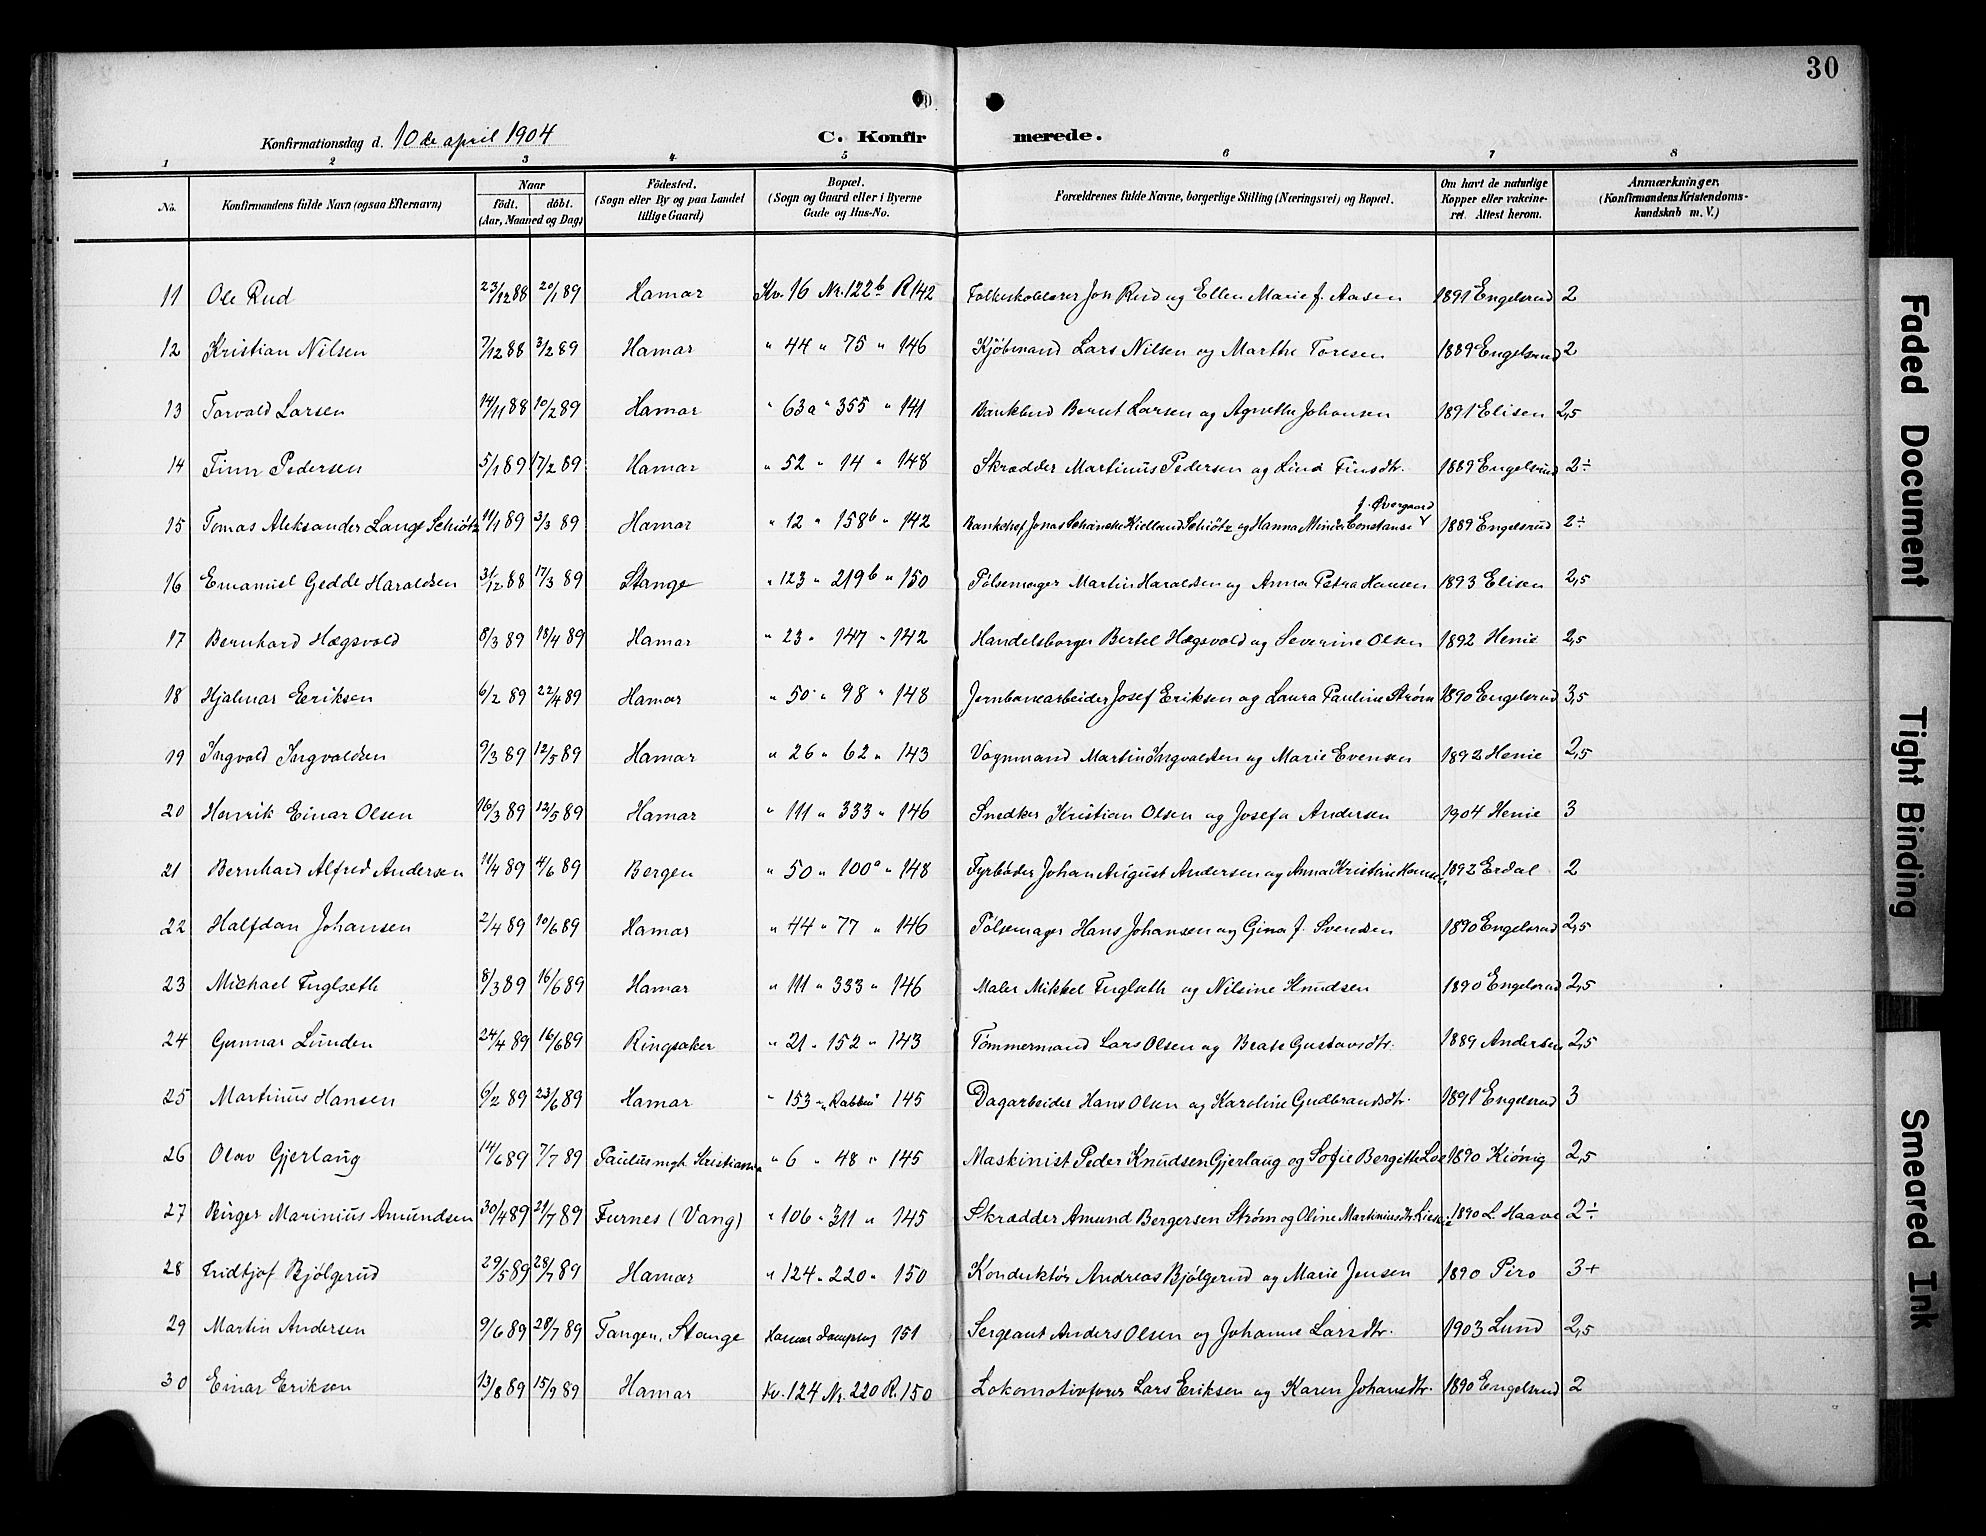 30
Konfirmationsdag d. 10de april 1904
C. Konfirmerede.
1 2 3 4 5 6 7 8
No.
Konfirmandens fulde Navn (ogsaa Efternavn)
Naar
født. døbt.
(Aar, Maaned og Dag)
Fødested.
(Sogn eller By og paa Landet
tillige Gaard)
Bopæl.
(Sogn og Gaard eller i Byerne
Gade og Hus-No.
Forældrenes fulde Navne, borgerlige Stilling (Næringsvei) og Bopæl.
Om havt de naturlige
Kopper eller vakcine-
ret. Attest herom.
Anmærkninger.
(Konfirmandens Kristendoms-
kundskab m. V.)
11 Ole Rud 23/12 88 20/1 89 Hamar Kv. 16 Nr. 122b R 142 Folkeskolelærer Jon Rud og Ellen Marie f. Aasen 1891 Engelsrud 2
12 Kristian Nilsen 7/12 88 3/2 89 Hamar " 44 " 75 " 146 Kjøbmand Lars Nilsen og Marthe Toresen 1889 Engelsrud 2
13 Torvald Larsen 14/11 88 10/2 89 Hamar " 63a " 355 " 141 Bankbud Bernt Larsen og Agnethe Johansen 1891 Elisen 2,5
14 Finn Pedersen 5/1 89 17/2 89 Hamar " 52 " 14 " 148 Skrædder Martinus Pedersen og Lina Finsdtr. 1889 Engelsrud 2÷
f. Overgaard
15 Tomas Aleksander Lange Schiötz 11/1 89 3/3 89 Hamar " 12 " 158b " 142 Bankchef Jonas Schanche Kielland Schiötz og Hanna Minda Constanse 1889 Engelsrud 2÷
16 Emanuel Gedde Haraldsen 31/12 88 17/3 89 Stange " 123 " 219b " 150 Pølsemager Martin Haraldsen og Anna Petra Hansen 1893 Elisen 2,5
17 Bernhard Hægsvold 8/3 89 18/4 89 Hamar " 23 " 147 " 142 Handelsborger Bertel Hægsvold og Severine Olsen 1892 Henie 2,5
18 Hjalmar Eeriksen 6/2 89 22/4 89 Hamar " 50 " 98 " 148 Jernbanearbeider Josef Eriksen og Laura Pauline Strøm 1890 Engelsrud 3,5
19 Ingvald Ingvaldsen 9/3 89 12/5 89 Hamar " 26 " 62 " 143 Vognmand Martin Ingvaldsen og Marie Evensen 1892 Henie 2,5
20 Henrik Einar Olsen 16/3 89 12/5 89 Hamar " 111 " 333 " 146 Snedker Kristian Olsen og Josefa Andersen 1904 Henie 3
21 Bernhard Alfred Andersen 11/4 89 4/6 89 Bergen " 50 " 100a " 148 Fyrbøder Johan August Andersen og Anna Kristine Hansen 1892 Erdal 2
22 Halfdan Johansen 2/4 89 10/6 89 Hamar " 44 " 77 " 146 Pølsemager Hans Johansen og Gina f. Svendsen 1890 Engelsrud 2,5
23 Michael Fuglseth 8/3 89 16/6 89 Hamar " 111 " 333 " 146 Maler Mikkel Fuglseth og Nilsine Knudsen 1890 Engelsrud 2,5
24 Gunnar Lunden 24/4 89 16/6 89 Ringsaker " 21 " 152 " 143 Tømmermand Lars Olsen og Beate Gustavsdtr. 1889 Andersen 2,5
25 Martinus Hansen 6/2 89 23/6 89 Hamar " 153 " 145 Dagarbeider Hans Olsen og Karoline Gudbrandsdtr. 1891 Engelsrud 3
26 Olav Gjerlaug 14/6 89 7/7 89 Paulus mgh. Kristiania " 6 " 48 " 145 Maskinist Peder Knudsen Gjerlaug og Sofie Bergitte Loe 1890 Kiønig 2,5
27 Birger Marinius Amundsen 30/4 89 21/7 89 Furnes (Vang) " 106 " 311 " 145 Skrædder Amund Bergersen Strøm og Oline Martiniusdtr. 1890 L. Haave 2÷
28 Fridtjof Bjølgerud 29/5 89 28/7 89 Hamar " 124 " 220 " 150 Konduktør Andreas Bjølgerud og Marie Jensen 1890 Piro 3+
29 Martin Andersen 9/6 89 28/7 89 Tangen, Stange Hamar Dampsag 151 Sergeant Anders Olsen og Johanne Larsdtr. 1903 Lund 2,5
30 Einar Eriksen 13/8 89 15/9 89 Hamar Kv. 124 Nr. 220 R. 150 Lokomotivfører Lars Eriksen og Karen Johansdtr. 1890 Engelsrud 2
Faded Document
Tight Binding
Smeared Ink